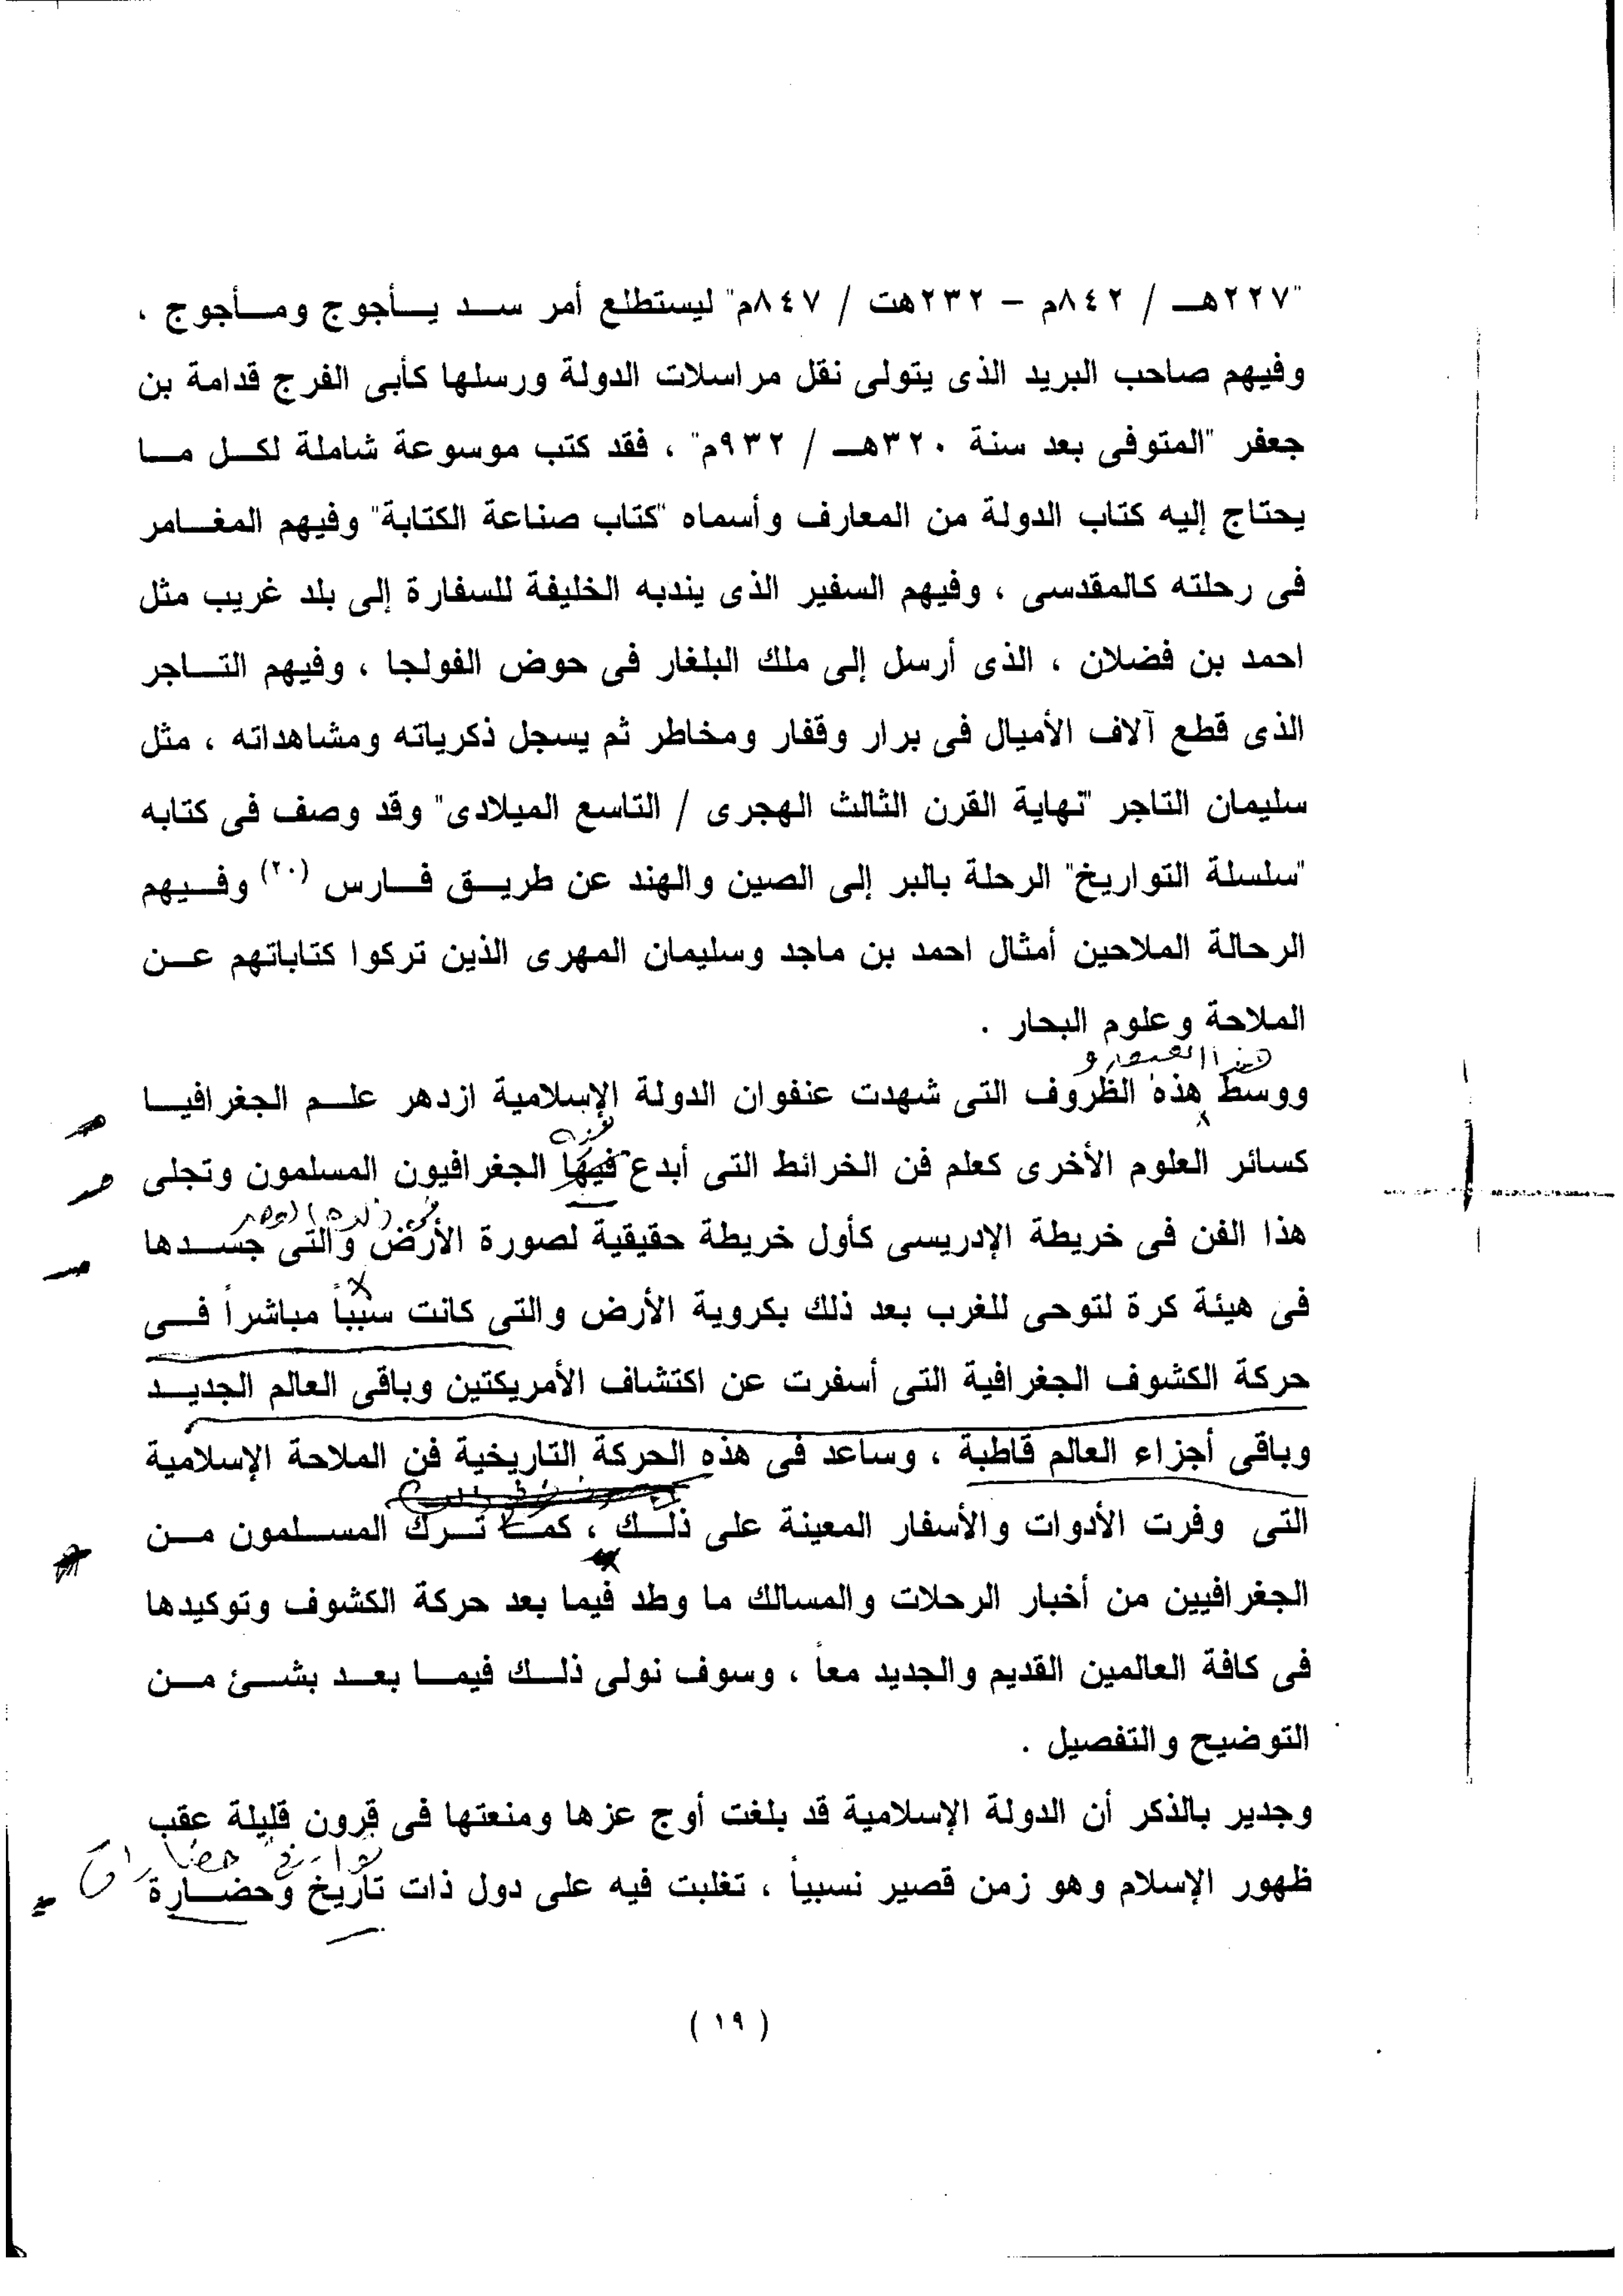 "٢٢٧هـ / ٨٤٢م – ٢٣٢هت / ٨٤٧م" ليستطلع أمر سد يأجوج ومأجوج ،
وفيهم صاحب البريد الذى يتولى نقل مراسلات الدولة ورسلها كأبى الفرج قدامة بن
جعفر "المتوفى بعد سنة ٣٢٠هـ / ٩٣٢م" ، فقد كتب موسوعة شاملة لكل ما
يحتاج إليه كتاب الدولة من المعارف وأسماه "كتاب صناعة الكتابة" وفيهم المغامر
فى رحلته كالمقدسى ، وفيهم السفير الذى يندبه الخليفة للسفارة إلى بلد غريب مثل
احمد بن فضلان ، الذى أرسل إلى ملك البلغار فى حوض الفولجا ، وفيهم التاجر
الذى قطع آلاف الأميال فى برار وقفار ومخاطر ثم يسجل ذكرياته ومشاهداته ، مثل
سليمان التاجر "نهاية القرن الثالث الهجرى / التاسع الميلادى" وقد وصف فى كتابه
"سلسلة التواريخ" الرحلة بالبر إلى الصين والهند عن طريق فارس (٢٠) وفيهم
الرحالة الملاحين أمثال احمد بن ماجد وسليمان المهرى الذين تركوا كتاباتهم عن
الملاحة وعلوم البحار .
هذا العصر و
ووسط هذه الظروف التى شهدت عنفوان الدولة الإسلامية ازدهر علم الجغرافيا
كسائر العلوم الأخرى كعلم فن الخرائط التى أبدع فيها الجغرافيون المسلمون وتجلى
فى ذلك العصر
هذا الفن فى خريطة الإدريسى كأول خريطة حقيقية لصورة الأرض والتى جسدها
فى هيئة كرة لتوحى للغرب بعد ذلك بكروية الأرض والتى كانت سبباً مباشراً فى
حركة الكشوف الجغرافية التى أسفرت عن اكتشاف الأمريكتين وباقى العالم الجديد
وباقى أجزاء العالم قاطبة ، وساعد فى هذه الحركة التاريخية فن الملاحة الإسلامية
التى وفرت الأدوات والأسفار المعينة على ذلك ، كما ترك المسلمون من
الجغرافيين من أخبار الرحلات والمسالك ما وطد فيما بعد حركة الكشوف وتوكيدها
فى كافة العالمين القديم والجديد معاً ، وسوف نولى ذلك فيما بعد بشئ من
التوضيح والتفصيل .
وجدير بالذكر أن الدولة الإسلامية قد بلغت أوج عزها ومنعتها فى قرون قليلة عقب
تواريخ حضارات
ظهور الإسلام وهو زمن قصير نسبياً ، تغلبت فيه على دول ذات تاريخ وحضارة
( ١٩ )